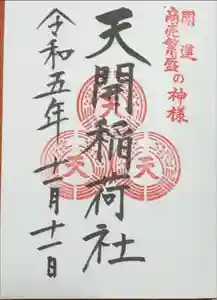 開運
商売繁盛の神様
天開稲荷社
令和五年十一月十一日
天
天
天